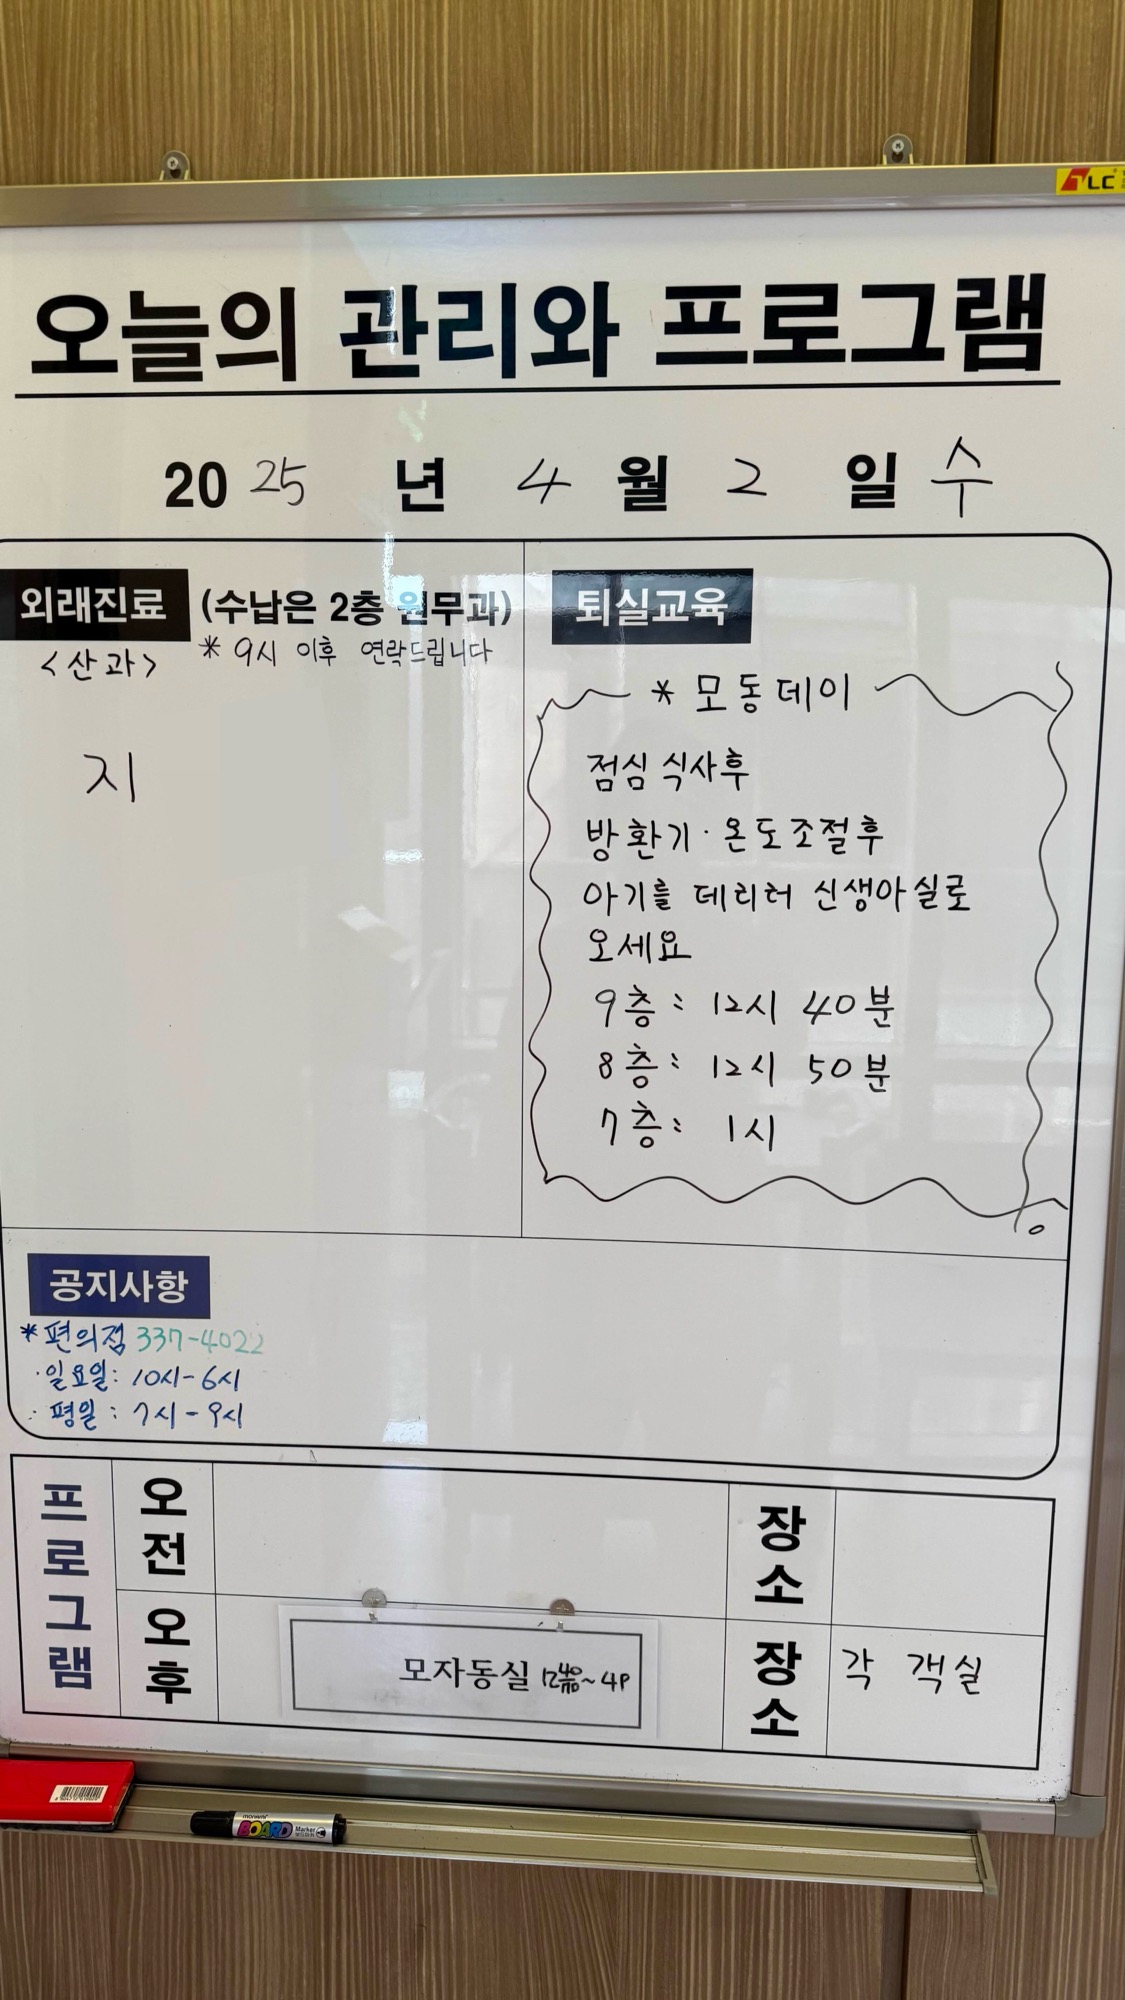 TLC
오늘의 관리와 프로그램
2025 년 4 월 2 일 수
외래진료 (수납은 2층 원무과)
<산과> * 9시 이후 연락드립니다
지
퇴실교육
* 모동데이
점심 식사후
방환기·온도조절후
아기를 데리러 신생아실로
오세요
9층: 12시 40분
8층: 12시 50분
7층: 1시
공지사항
*편의점 337-4022
·일요일: 10시-6시
·평일: 7시-9시
프로그램
오전
장소
오후
모자동실 12~4P
장소
각 객실
monami
BOARD Marker